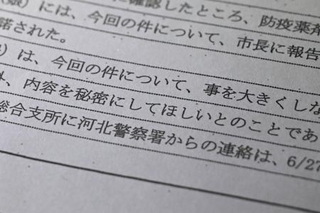 確認したところ、防疫薬剤
には、今回の件について、市長に報告
諾された。
は、今回の件について、事を大きくしな
、内容を秘密にしてほしいとのことであ
総合支所に河北警察署からの連絡は、6/27